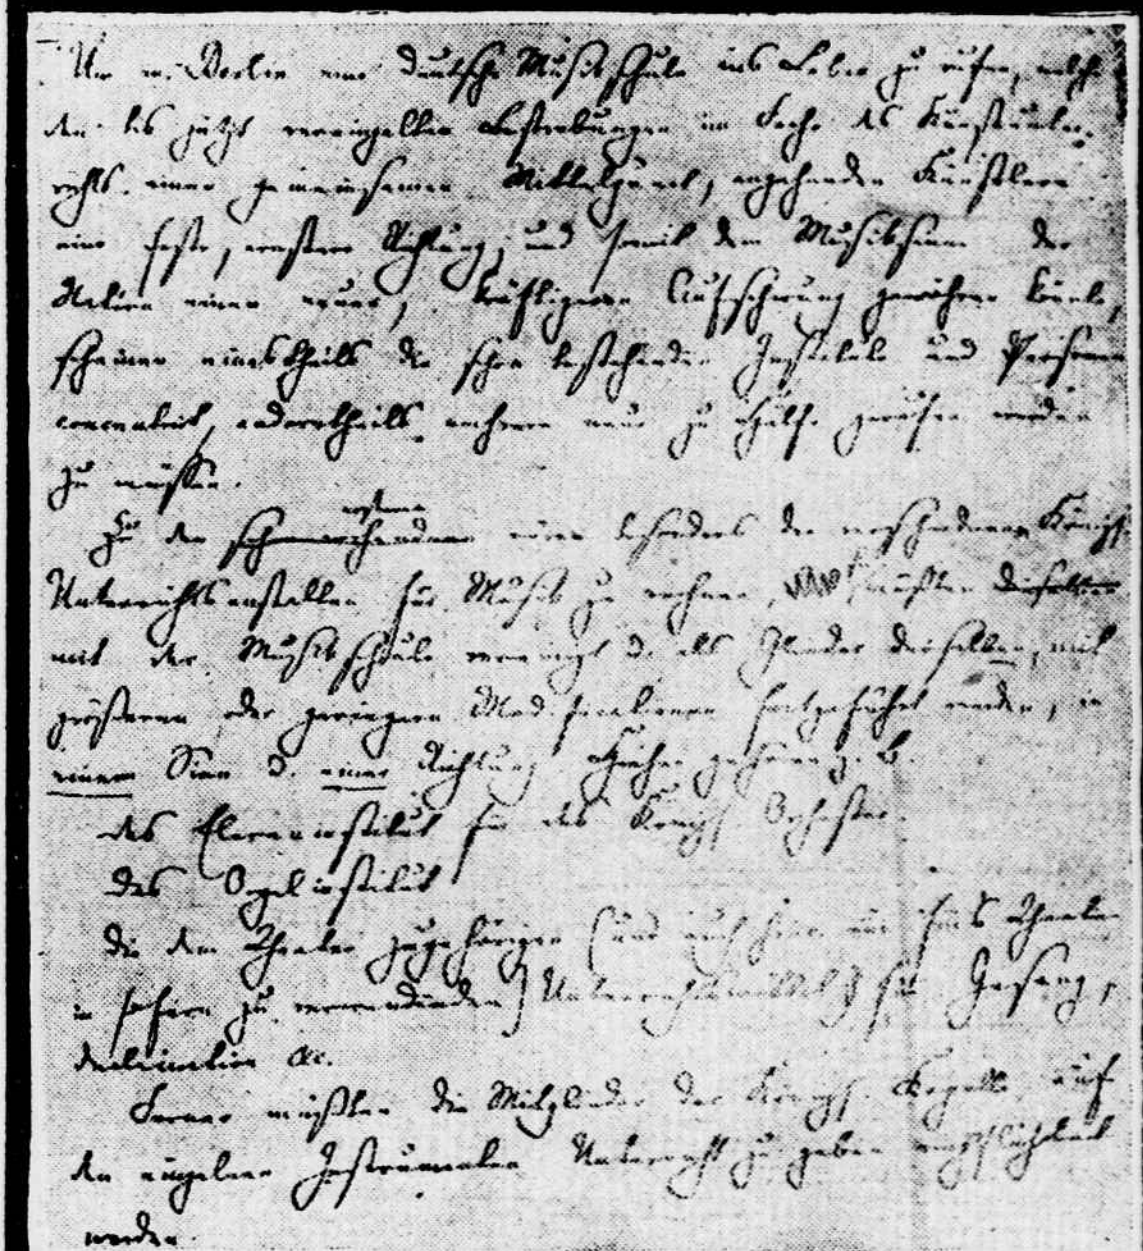 Um in Berlin eine deutsche Musikschule ins Leben zu rufen, welche
den bis jetzt vereinzelten Bestrebungen im Fache des Kunstunter-
richts einen gemeinsamen Mittelpunct, angehenden Künstlern
eine feste, ernstere Richtung, und somit dem Musiksinn der
Nation einen neuen, kräftigeren Aufschwung gewähren könnte,
scheinen einestheils die schon bestehenden Institute und Personen
concentrirt, anderntheils mehrere neue zu Hülfe gerufen werden
zu müssen.
Zu den ersteren wären besonders die verschiedenen Königl.
Unterrichtsanstalten für Musik zu rechnen, müßten dieselben
mit der Musikschule vereinigt u. als Glieder derselben, mit
größeren oder geringern Modificationen fortgeführt werden, in
einem Sinn u. einer Richtung. Hieher gehören z. B.
das Eleveninstitut für das Königl. Orchester.
das Orgelinstitut
die dem Theater zugehörigen (und auch fürs Theater
in sofern zu verwendenden) für Gesang,
declamation &c.
Ferner müßten die Mitglieder der Königl. Kapelle auf
den einzelnen Instrumenten Unterricht zu geben verpflichtet
werden.